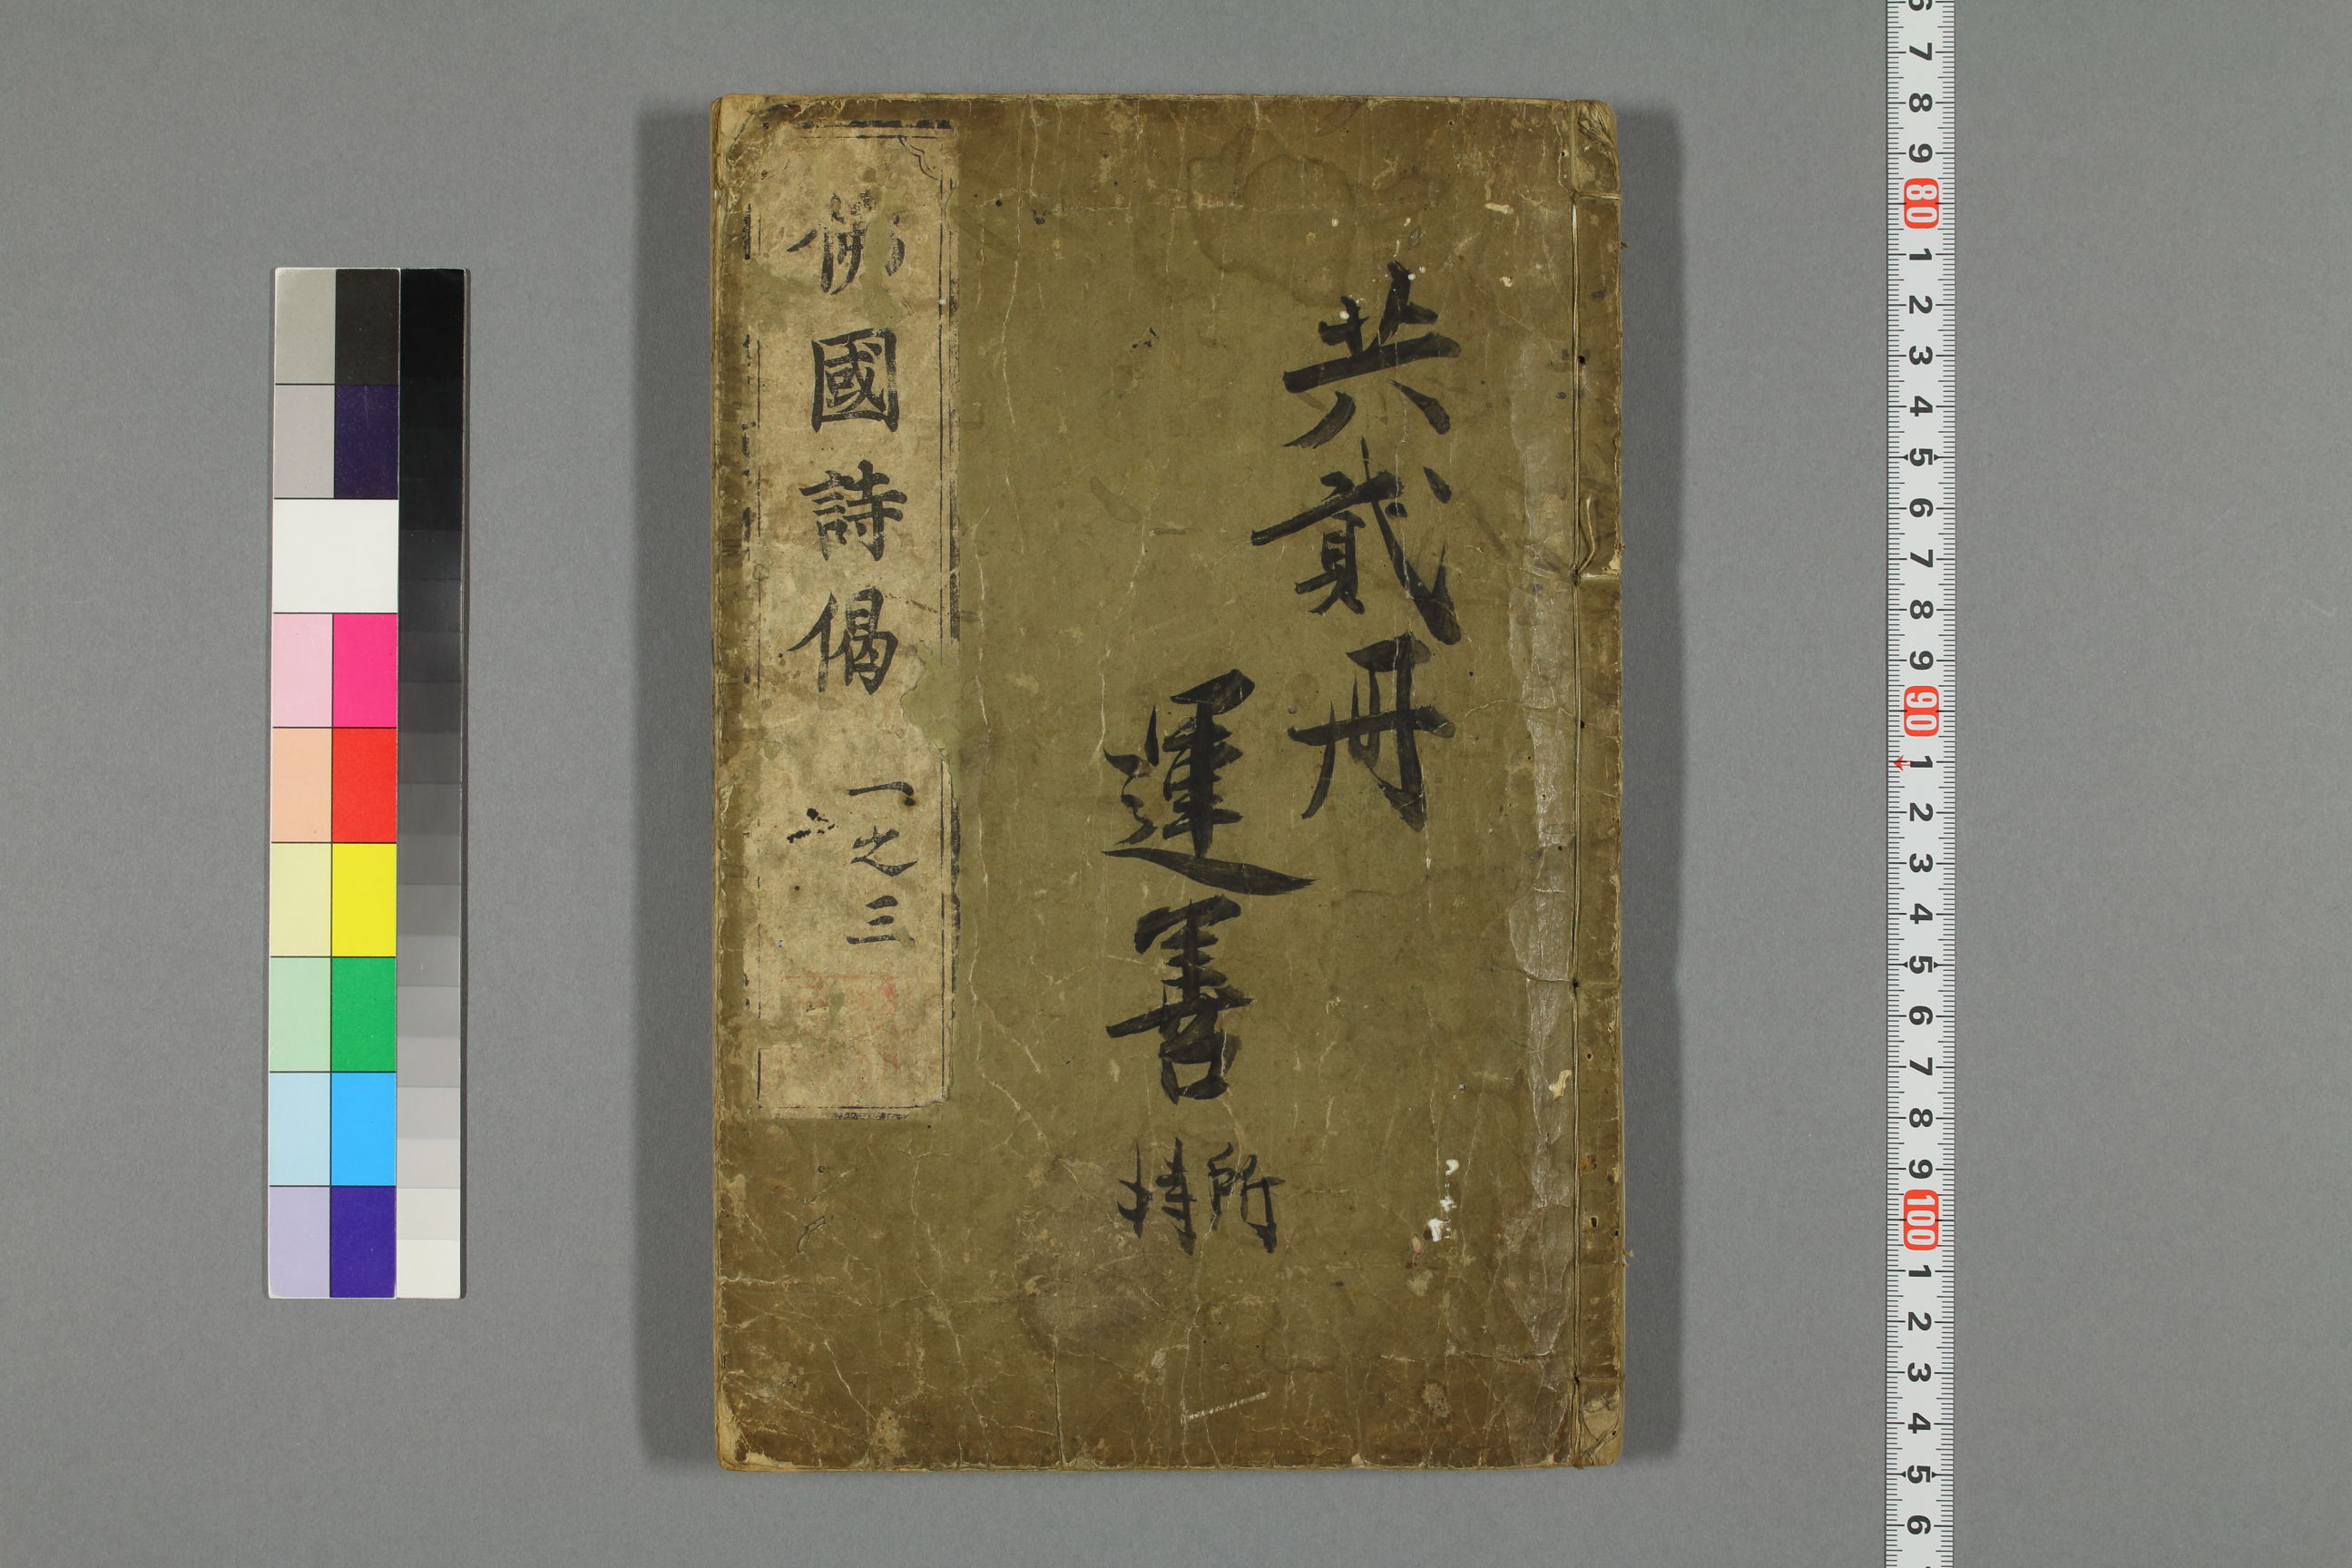 共貳冊
運善
所持
佛國詩偈 一之三
6 7 8 9 80 1 2 3 4 5 6 7 8 9 90 1 2 3 4 5 6 7 8 9 100 1 2 3 4 5 6